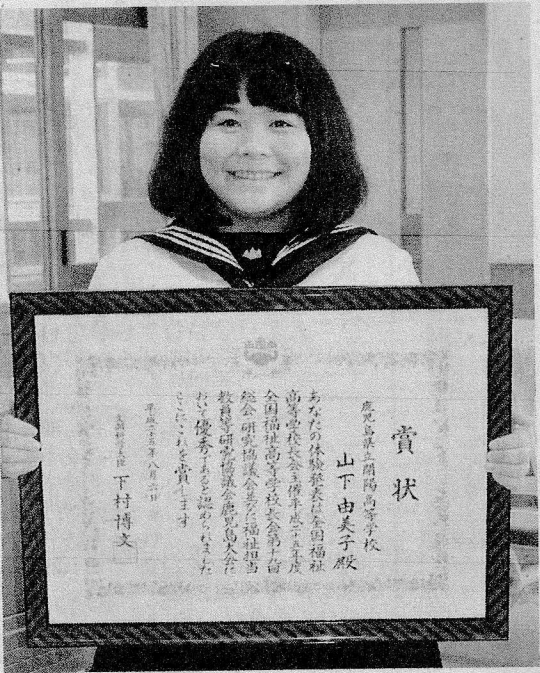 賞状
鹿児島県立開陽高等学校
山下由美子殿
あなたの体験発表は全国福祉
高等学校長会主催平成二十五年度
全国福祉高等学校長会第十六回
総会・研究協議会並びに福祉担当
教員等研究協議会鹿児島大会に
おいて優秀であると認められました
ここにこれを賞します
平成二十五年八月
文部科学大臣 下村博文